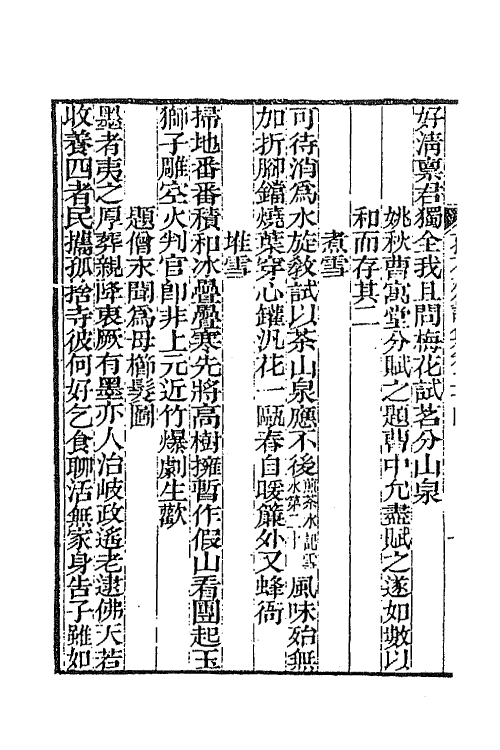 好淸禀君獨全我且問梅花試茗分山泉
姚秋曹寓堂分賦之題曹中允盡賦之遂如數以
和而存其二
煮雪
可待消爲水旋敎試以茶山泉應不後煎茶水記雪水第二十風味殆無
加折腳鐺燒葉穿心罐汎花一甌春自暖簾外又蜂衙
堆雪
掃地番番積和冰疊疊寒先將高樹擁暫作假山看團起玉
獅子雕空火判官卽非上元近竹爆劇生歡
題僧末聞爲母櫛髮圖
墨者夷之厚葬親降衷厥有墨亦人治岐政遙老逮佛天若
收養四者民攜孤捨寺彼何好乞食聊活無家身告子雖如